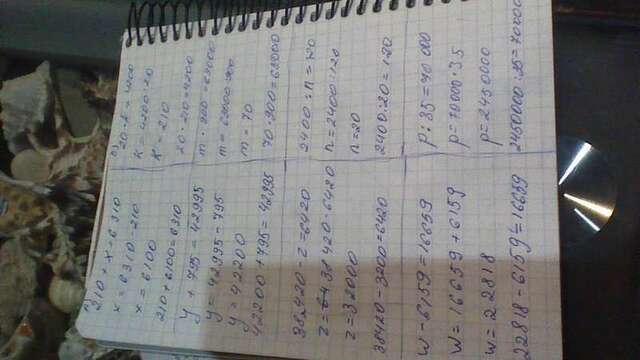 210 + x = 6310
x = 6310 - 210
x = 6100
210 + 6100 = 6310
y + 795 = 42995
y = 42995 - 795
y = 42200
42200 + 795 = 42995
38420 - z = 6420
z = 38420 - 6420
z = 32000
38420 - 3200 = 6420
w - 6159 = 16659
w = 16659 + 6159
w = 22818
22818 - 6159 = 16659
20 · k = 4200
k = 4200 : 20
k = 210
20 · 210 = 4200
m · 900 = 63000
m = 63000 : 900
m = 70
70 · 900 = 63000
2400 : n = 120
n = 2400 : 120
n = 20
2400 : 20 = 120
p : 35 = 70 000
p = 70000 · 35
p = 2450000
2450000 : 35 = 70000